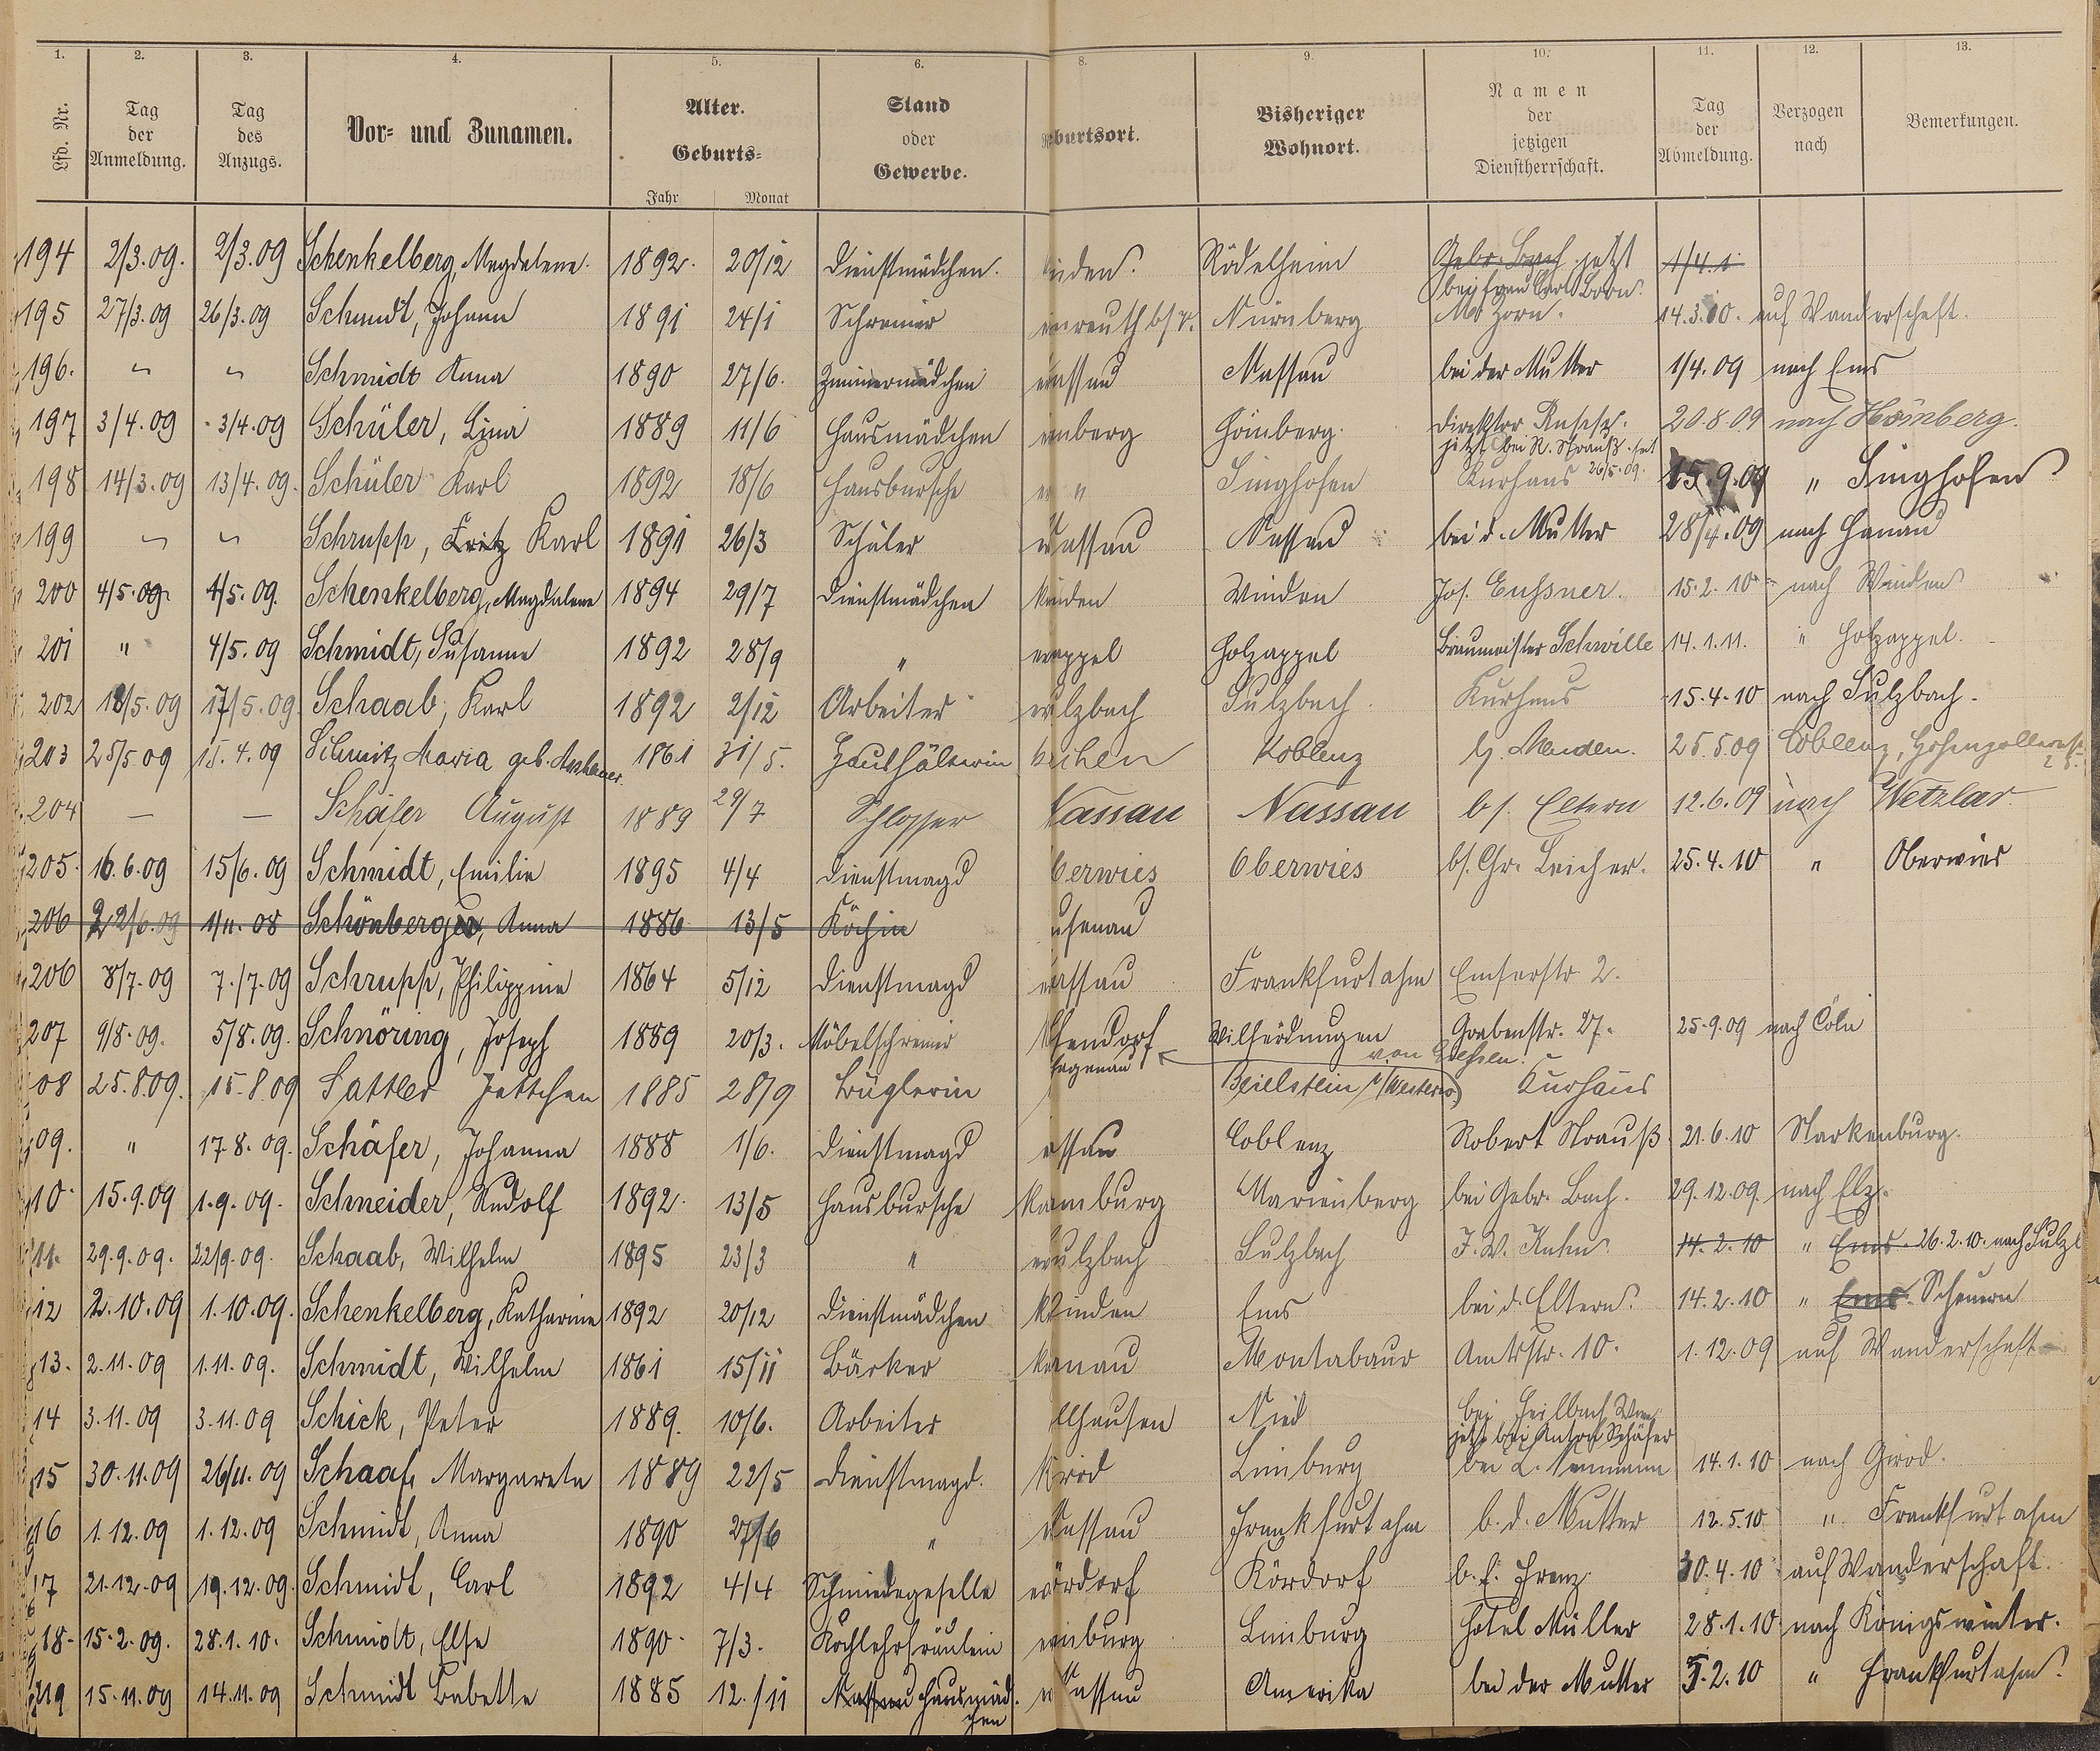 1. 2. 3. 4. 5. 6. 8. 9. 10. 11. 12. 13.
Lfd. Nr. Tag der Anmeldung. Tag des Anzugs. Vor- und Zunamen. Alter. Geburts- Jahr Monat Stand oder Gewerbe. burtsort. Bisheriger Wohnort. Namen der jetzigen Dienstherrschaft. Tag der Abmeldung. Verzogen nach Bemerkungen.
194 2/3.09. 2/3.09 Schenkelberg, Magdalene. 1892. 20/12 Dienstmädchen. inden. Rödelheim Gebr. Bach jetzt 1/4.1
bei Frau Carl Born.
195 27/3.09 26/3.09 Schmidt, Johann 1891 24/1 Schreiner Nürnberg M. Zorn. 14.3.10. auf Wanderschaft.
196. " " Schmidt Anna 1890 27/6. Zimmermädchen assau Nassau bei der Mutter 1/4.09 nach Ems
197 3/4.09 3/4.09 Schüler, Lina 1889 11/6 Hausmädchen mberg Hömberg. Direktor 20.8.09 nach Hömberg.
jetzt bei R. Strauß. seit
198 14/3.09 13/4.09. Schüler Karl 1892 18/6 Hausbursche " Singhofen Kurhaus 26/5.09. 15.9.09 " Singhofen
199 " " Schrupp, Fritz Karl 1891 26/3 Schüler assau Nassau bei d. Mutter 28/4.09 nach Hanau
200 4/5.09. 4/5.09. Schenkelberg, Magdalene 1894 29/7 Dienstmädchen inden Winden Jos. Eussner. 15.2.10 nach Winden
201 " 4/5.09 Schmidt, Susanne 1892 28/9 " appel Holzappel Braumeister Schwille 14.1.11. " Holzappel.
202 18/5.09 17/5.09 Schaab, Karl 1892 2/12 Arbeiter ulzbach Sulzbach Kurhaus 15.4.10 nach Sulzbach.
203 25/5 09 15.4.09 Schmitz Maria geb. 1861 31/5. Haushälterin chen Koblenz 25.5.09 Coblenz, Hohenzollernst.
204 — — Schäfer August 1889 29/7 Schlosser Nassau Nassau b/. Eltern 12.6.09 nach Wetzlar
205. 16.6.09 15/6.09 Schmidt, Emilie 1895 4/4 Dienstmagd berwies Oberwies b/. Chr. Leicher. 25.4.10 " Oberwies
206 22/6.09 1/11.08 Schönberger, Anna 1886 13/5 Köchin usenau
206 8/7.09 7./7.09 Schrupp, Philippine 1864 5/12 Dienstmagd assau Frankfurt a/m Emserstr. 2.
207 9/8.09. 5/8.09. Schnöring, Joseph 1889 20/3. Möbelschreiner endorf Grabenstr. 27. 25.9.09 nach Cöln
08 25.8.09. 15.8.09 Sattler Jettchen 1885 28/9 Büglerin Beielstein i/Westerw. Kurhaus
09. " 17.8.09. Schäfer, Johanna 1888 1/6. Dienstmagd assau Coblenz Robert Strauß 21.6.10 Starkenburg.
10. 15.9.09 1.9.09. Schneider, Rudolf 1892. 13/5 Hausbursche amburg Marienberg bei Gebr. Bach. 29.12.09. nach Elz.
11. 29.9.09. 22/9.09. Schaab, Wilhelm 1895 23/3 " ulzbach Sulzbach J. W. Kuhn 14.2.10 " Ems. 26.2.10. nach Sulzb
12 2.10.09 1.10.09. Schenkelberg, Katharine 1892 20/12 Dienstmädchen inden Ems bei d. Eltern. 14.2.10 " Ems. Scheuern
13. 2.11.09 1.11.09. Schmidt, Wilhelm 1861 15/11 Bäcker anau Montabaur Amtsstr. 10. 1.12.09 auf Wanderschaft
14 3.11.09 3.11.09 Schick, Peter 1889. 10/6. Arbeiter llhausen Nied bei Heilbach Wwe
jetzt bei Anton Schäfer
15 30.11.09 26/11.09 Schaaf, Margareta 1889 22/5 Dienstmagd. irod Limburg bei L. Neumann 14.1.10 nach Girod.
16 1.12.09 1.12.09 Schmidt, Anna 1890 27/6 " assau Frankfurt a/m b. d. Mutter 12.5.10 " Frankfurt a/m
17 21.12.09 19.12.09. Schmidt, Carl 1892 4/4 Schmiedegeselle ördorf Kördorf b. f. Franz. 30.4.10 auf Wanderschaft.
18. 15.2.09. 28.1.10. Schmidt, Else 1890. 7/3. Kochlehrfräulein mburg Limburg Hotel Müller 28.1.10 nach Königswinter.
219 15.11.09 14.11.09 Schmidt Babette 1885 12./11 Nassau Hausmäd- assau Amerika bei der Mutter 5.2.10 " Frankfurt a/m.
chen